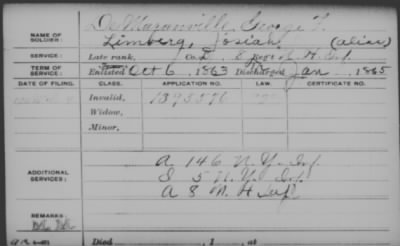 De Maranville, George F.
NAME OF SOLDIER: Limberg, Josiah (alias)
SERVICE: Late rank, Co. I, 8 Reg't N. H. Inf.
TERM OF SERVICE: Enlisted Oct 6, 1863 Discharged Jan, 1865
DATE OF FILING. CLASS. APPLICATION NO. LAW. CERTIFICATE NO.
Invalid, 1395576
Widow,
Minor,
ADDITIONAL SERVICES: A 146 N. Y. Inf.
I 5 N. Y. Inf.
A 8 N. H. Inf.
REMARKS:
Died , 1 , at